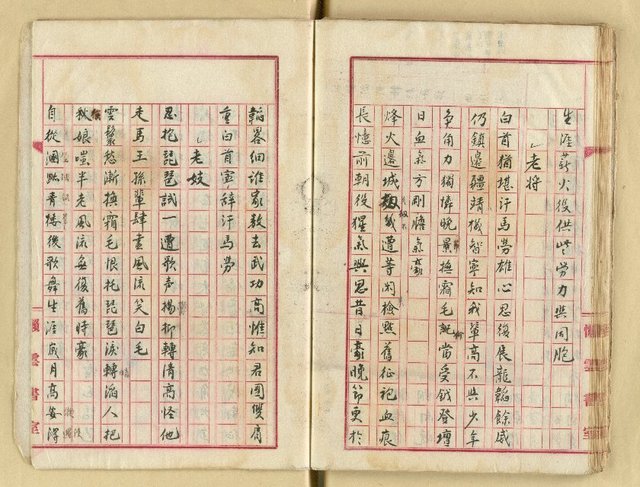 生涯薪火後供些勞力與同胞
老将
白首猶堪汗馬勞雄心忍後展龍韜餘威
仍鎮邊疆靖機智寧知我軰高不與少年
爭角力獨憐晚景換霜毛 當受鉞登壇
日血氣方剛膽氣豪
烽火邊城 幾遭等閒檢點舊征袍血痕
長憶前朝役猩氣與思昔日豪晚節更於
韜畧細誰家教去武功高惟知君國雙肩
重白首寧辭汗馬勞
老妓
忍抱琵琶試一遭歌声揚抑轉清高怪他
走馬王孫輩肆意風流笑白毛
雲鬢愁漸換霜毛恨托琵琶淚轉滔人把
秋娘嗤半老風流無復舊時豪
自從淪點青楼後歌舞生涯歲月高安得
懶雲書室
懶雲書室